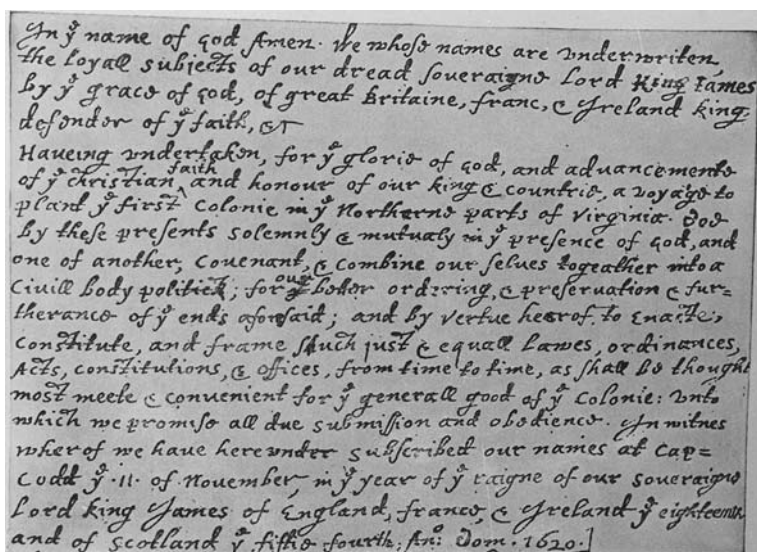 In yͤ name of god Amen. We whose names are vnderwriten,
the loyall subjects of our dread soveraigne Lord King Iames
by yͤ grace of god, of great Britaine, franc, & Ireland king,
defender of yͤ faith, &c
Haveing vndertaken, for yͤ glorie of god, and advancemente
of yͤ christian faith and honour of our king & countrie, a voyage to
plant yͤ first colonie in yͤ Northerne parts of Virginia. Doe
by these presents solemnly & mutualy in yͤ presence of god, and
one of another, covenant, & combine our selves togeather into a
Civill body politick; for our better ordering, & preservation & fur=
therance of yͤ ends aforesaid; and by vertue hearof, to enacte,
constitute, and frame such just & equall lawes, ordinances,
Acts, constitutions, & offices, from time to time, as shall be thought
most meete & convenient for yͤ generall good of yͤ colonie: vnto
which we promise all due submission and obedience. In witnes
wherof we have hereunder subscribed our names at Cap=
Codd yͤ .11. of November, in yͤ year of yͤ raigne of our soveraigne
Lord king James of England, france, & Ireland yͤ eighteenth
and of Scotland yͤ fiftie fourth. Anͦ: Dom. 1620.]